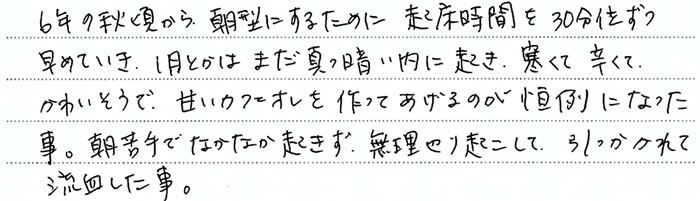 6年の秋頃から、朝型にするために 起床時間を30分位ずつ
早めていき、1月とかは まだ真っ暗い内に起き、寒くて辛くて、
かわいそうで、甘いカフェオレを作ってあげるのが恒例になった
事。朝苦手でなかなか起きず、無理やり起こして、引っかかれて
流血した事。